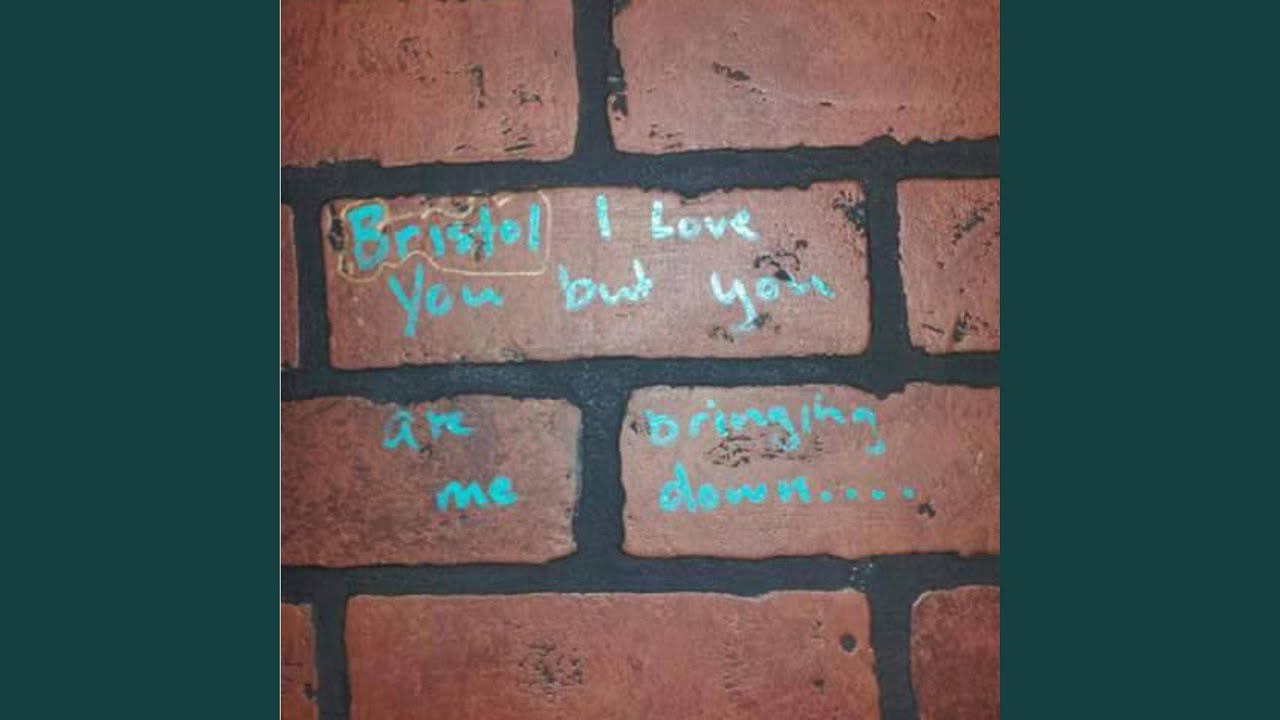 Bristol I Love
You but you
are bringing
me down....